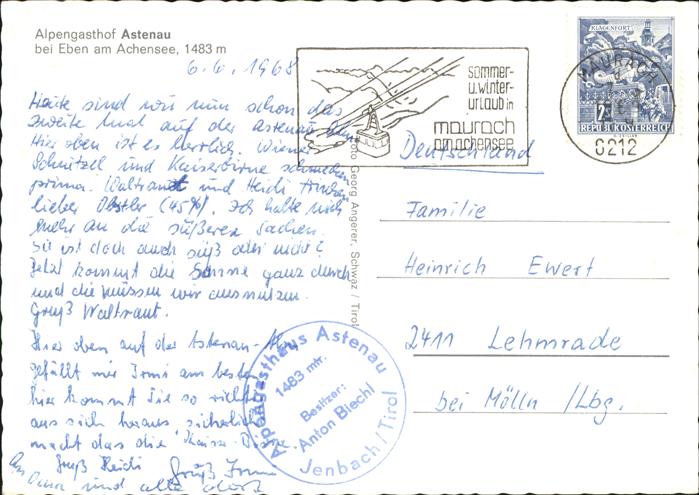 Alpengasthof Astenau
bei Eben am Achensee, 1483 m
6.6.1968
Heute sind wir nun schon das
zweite Mal auf der Astenau Alm
Hier oben ist es herrlich. Wiener
Schnitzel und Kaiserbirne schmecken
prima. Waltraut und Heidi trinken
lieber Obstler (45%). Ich halte mich
mehr an die süßeren Sachen.
Sie ist doch auch süß oder nicht?
Jetzt kommt die Sonne ganz durch
und die müssen wir ausnutzen.
Gruß Waltraut.
Hier oben auf der Astenau-Alm
gefällt mir Irmi am besten
hier kommt Sie so richtig
aus sich heraus, sicherlich
macht das die Kaiser-Birne.
Gruß Heidi Gruß Irmi
An Oma und alle
Foto Georg Angerer, Schwaz / Tirol
sommer-
u.winter-
urlaub in
maurach
am achensee
KLAGENFURT
2S
REPUBLIK ÖSTERREICH
MAURACH
6212
Deutschland
Familie
Heinrich Ewert
2411 Lehmrade
bei Mölln /Lbg.
Alpengasthaus Astenau
1483 mtr.
Besitzer:
Anton Biechl
Jenbach/Tirol